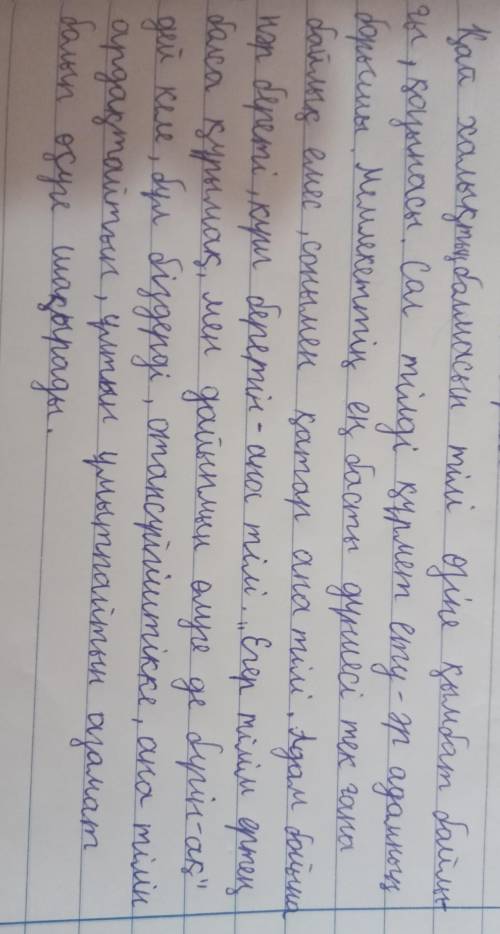 Қай халықтың болмасын тілі өзіне қымбат байлы-
ғы, қазынасы. Сол тілді құрмет ету - әр адамның
борышы. Мемлекеттің ең басты дүниесі тек ғана
байлық емес, сонымен қатар ана тілі. Адам бойына
нәр береті, күш беретін - ана тілі. „Егер тілім ертең
болса құрымақ, мен дайынмын өлуге де бүгін-ақ"
дей келе, бұл біздерді, отансүйгіштікке, ана тілін
ардақтайтын, ұлтын ұмытпайтын азамат
болып өсуге шақырады.